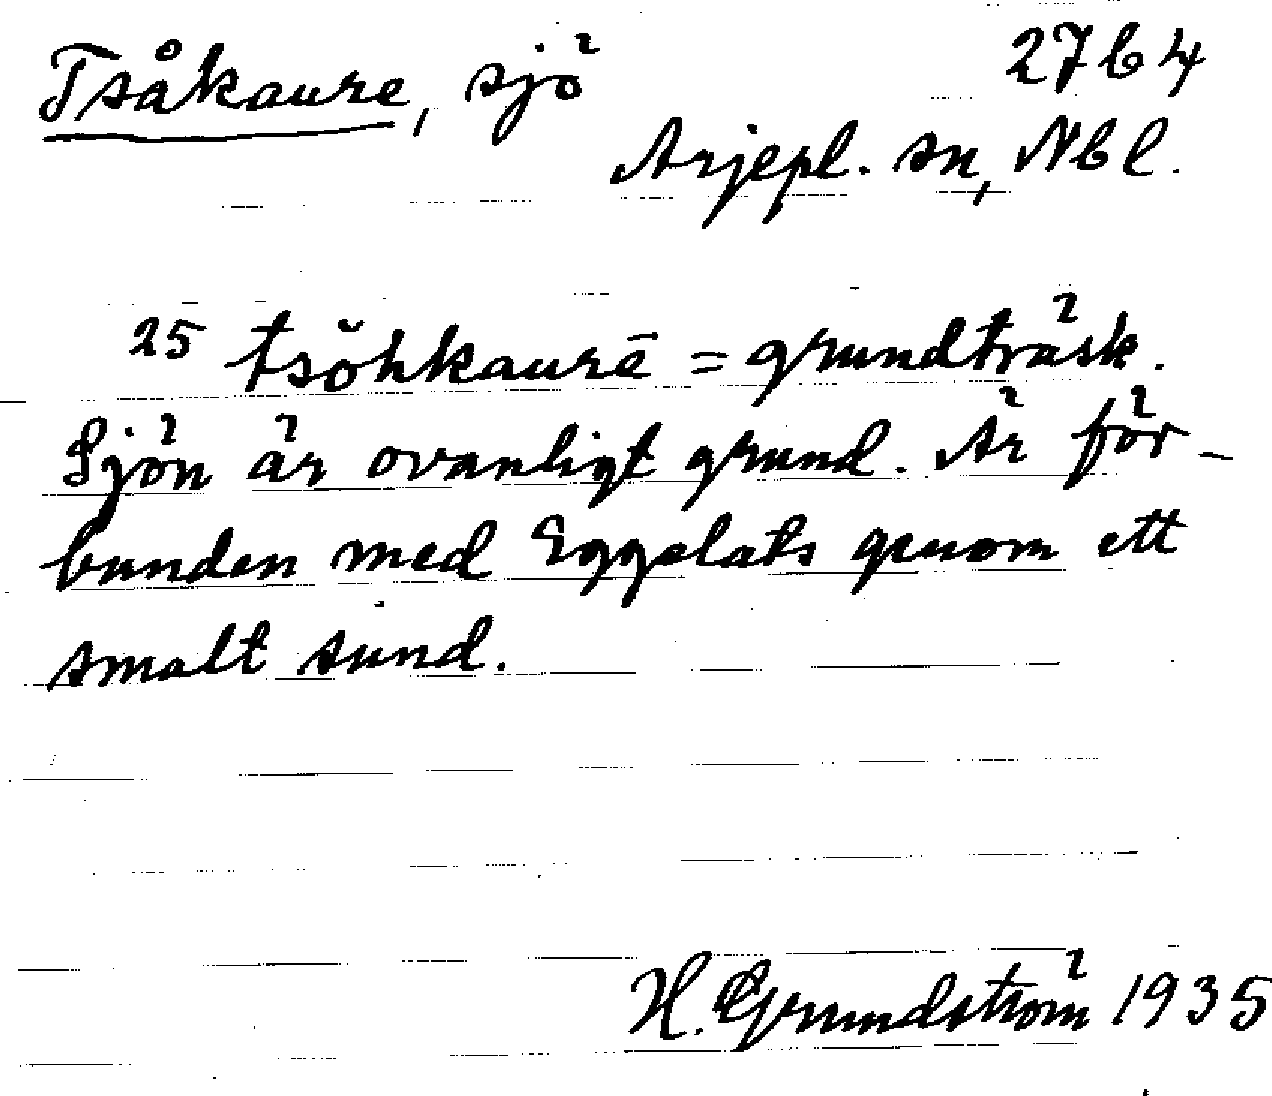 Tsåkaure, sjö 27b4
Arjepl. sn, Nbl.
25 tsŏhkaurē = grundträsk.
Sjön är ovanligt grund. Är för-
bunden med Eggelats genom ett
smalt sund.
H. Grundström 1935